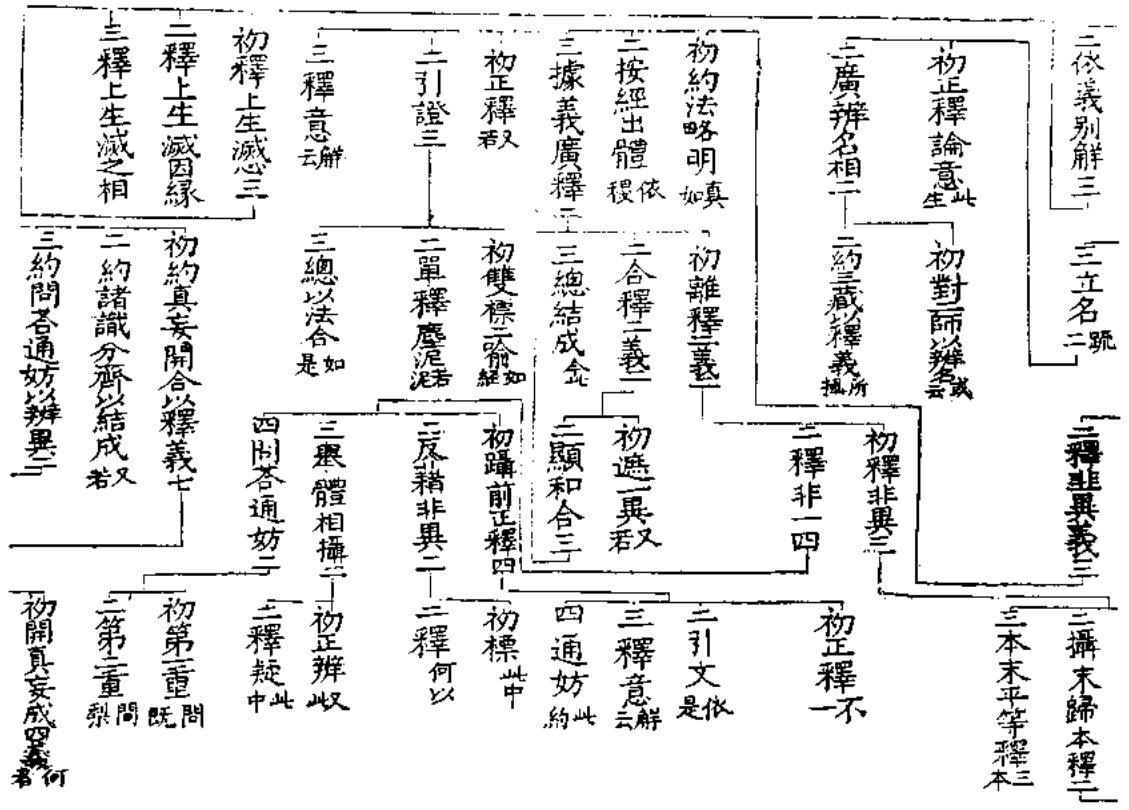 二依義別解三
初正釋論意 此生
二廣辨名相二
初約法略明 真如
二按經出體 依稷
三據義廣釋三
初正釋 又若
二引證三
三釋意 解云
初釋上生滅心三
二釋上生滅因緣
三釋上生滅之相
三立名 䟽二
初對二師以辨名 或云
二約三藏以釋義 所攝
初離釋二義二
二合釋二義二
三總結成 此
初雙標二喻 如經
二單釋塵泥 若泥
三總以法合 如是
初約真妄開合以釋義七
二約諸識分齊以結成 又若
三約問荅通妨以辨異二
二釋非異義三
初釋非異三
二釋非一四
初遮一異 又若
二顯和合三
初躡前正釋四
二反藉非異二
三舉體相攝二
四問荅通妨二
二攝末歸本釋二
三本末平等釋 三本
初正釋 不一
二引文 依是
三釋意 解云
四通妨 此約
初標 此中
二釋 何以
初正辨 又此
二釋疑 此中
初第一重 問既
二第二重 問梨
初開真妄成四義 何者